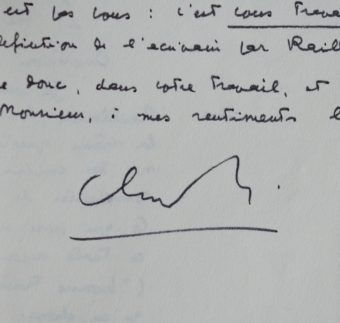 est pas vous : c'est vous Trava
définition de l'écrivain par Raill
e donc, dans votre Travail, et
Monsieur, à mes sentiments l